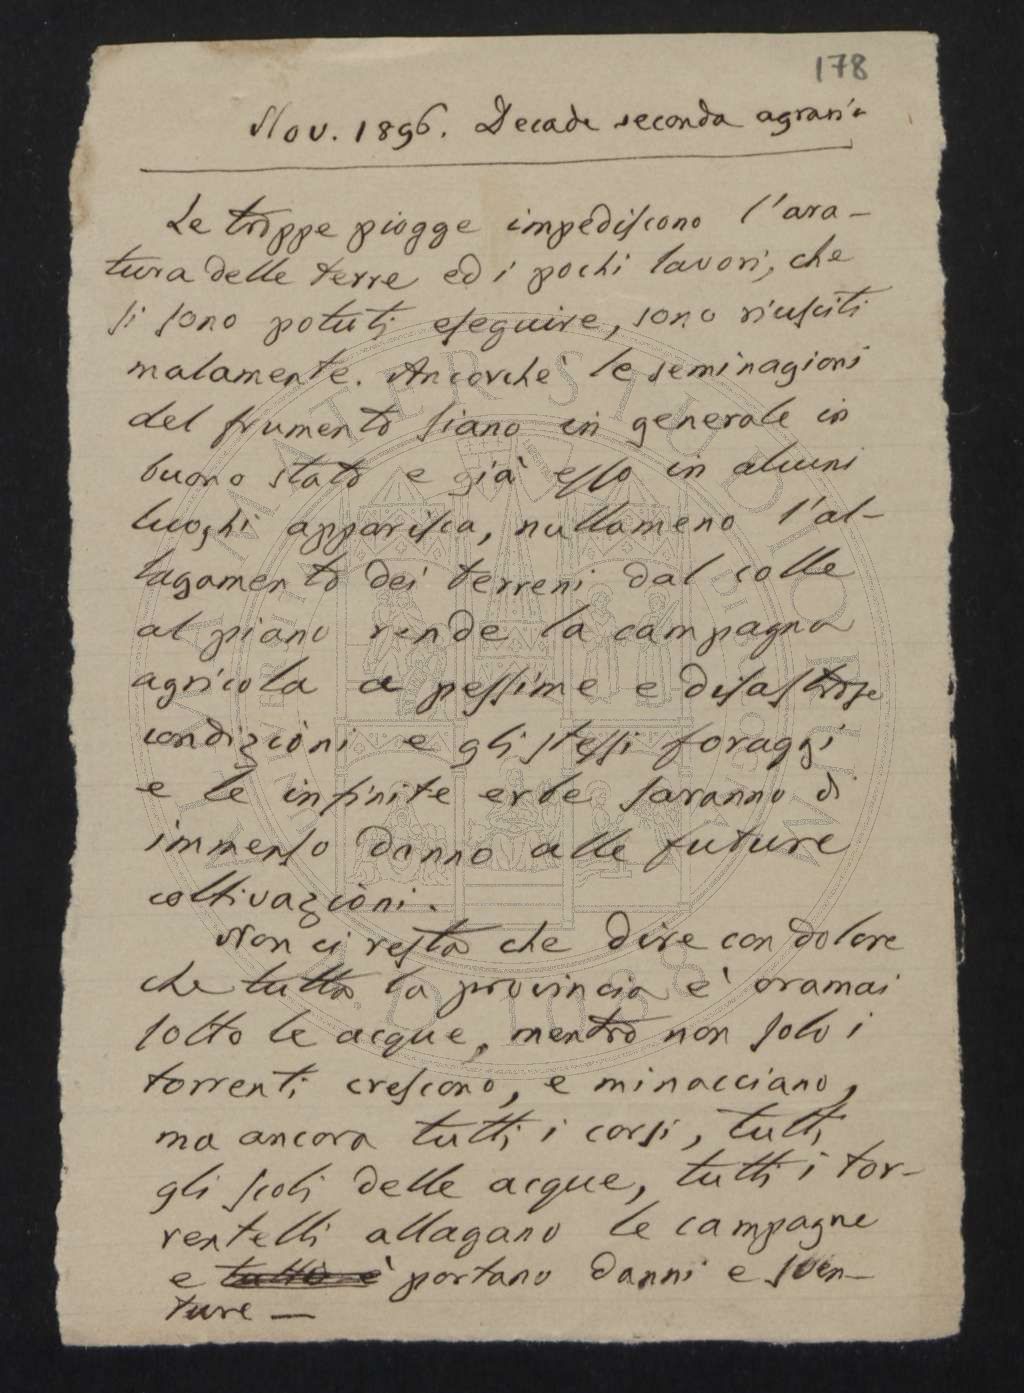 178
Nov. 1896. Decade seconda agraria
Le troppe piogge impediscono l'ara-
tura delle terre ed i pochi lavori, che
si sono potuti eseguire, sono riusciti
malamente. Ancorchè le seminagioni
del frumento siano in generale in
buono stato e già esso in alcuni
luoghi apparisca, nullameno l'al-
lagamento dei terreni dal colle
al piano rende la campagna
agricola a pessime e disastrose
condizioni e gli stessi foraggi
e le infinite erbe saranno di
immenso danno alle future
coltivazioni.
Non ci resta che dire con dolore
che tutta la provincia è oramai
sotto le acque, mentre non solo i
torrenti crescono, e minacciano,
ma ancora tutti i corsi, tutti
gli scoli delle acque, tutti i tor-
rentelli allagano le campagne
e tutto è portano danni e sven-
ture —
ALMA MATER STUDIORUM
A.D. 1088